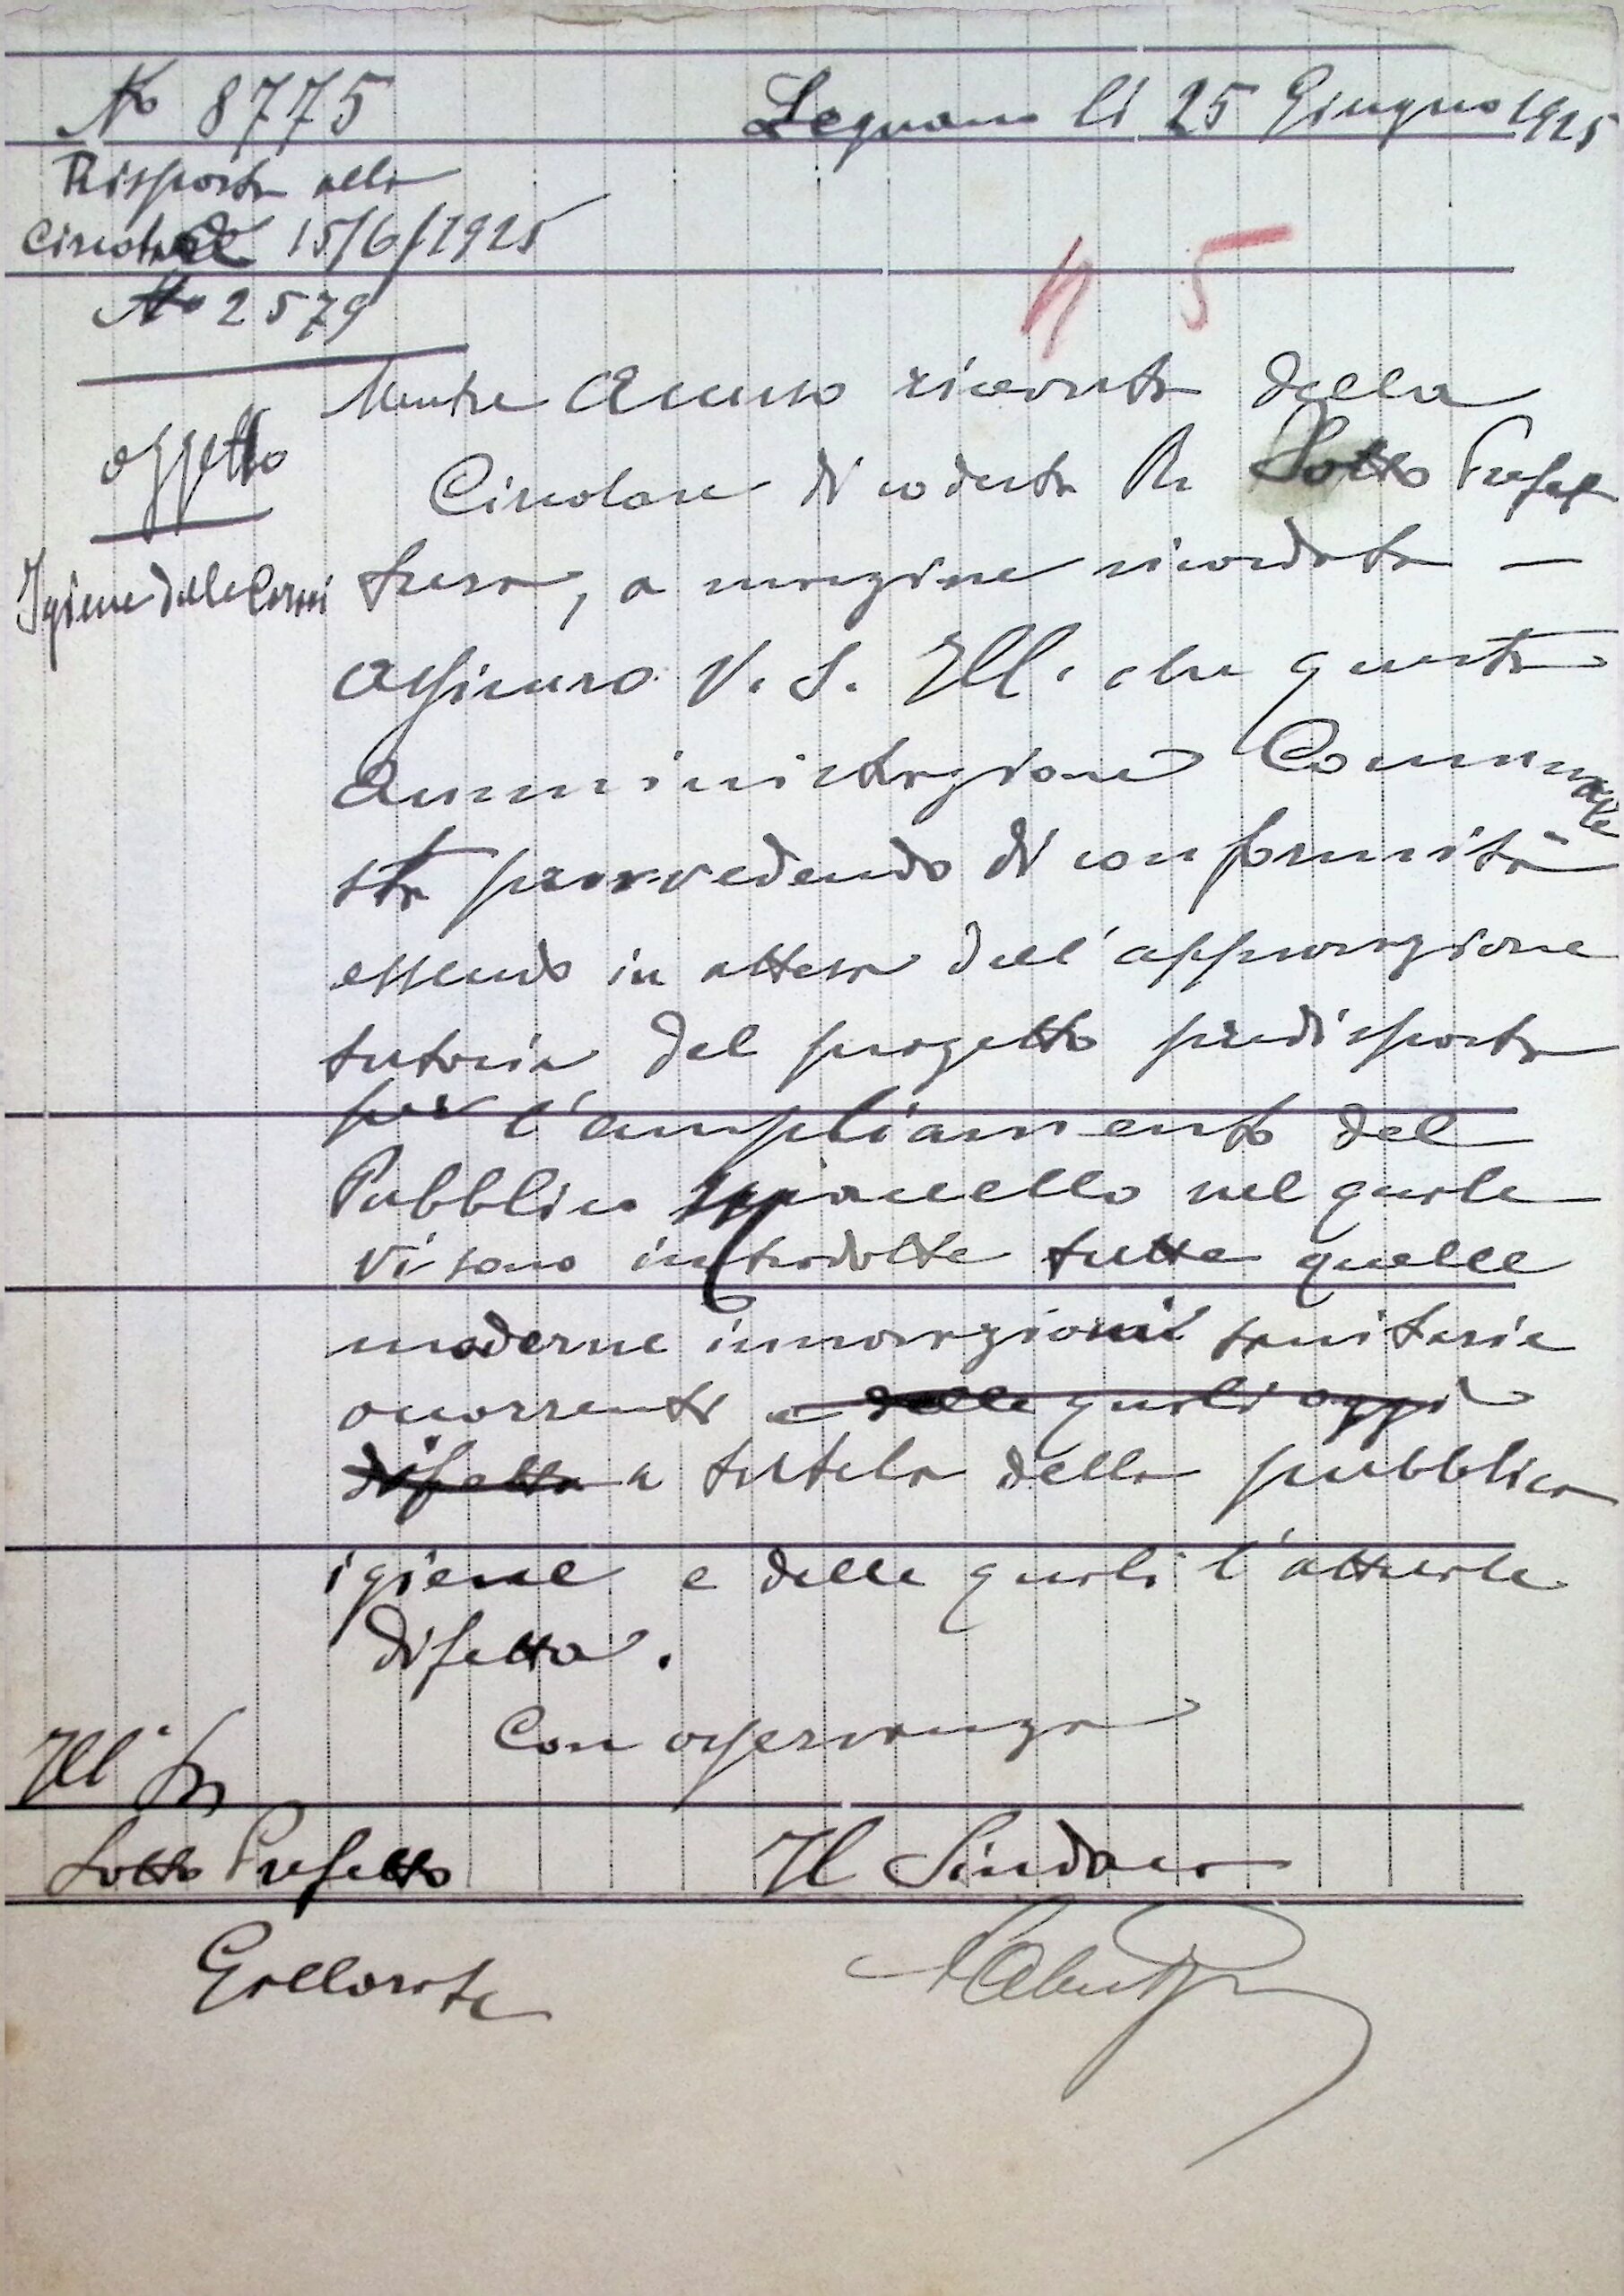 No 8775
Legnano li 25 Giugno 1925
Risposta alla
circolare 15/6/1925
No 2579
5
oggetto
Igiene delle Carni
Mentre accuso ricevuta della
Circolare di codesta R. Sotto Prefet
tura, a margine ricordata —
assicuro V. S. Ill. che questa
Amministrazione Comunale
sta provvedendo di conformità
essendo in attesa dell'approvazione
tutoria del progetto predisposto
per l'ampliamento del
Pubblico macello nel quale
vi sono introdotte tutte quelle
moderne innovazioni sanitarie
occorrenti e delle quali oggi
difetta a tutela della pubblica
igiene e delle quali l'attuale
difetta.
Con osservanza
Ill. Sr
Sotto Prefetto
Il Sindaco
Gallarate